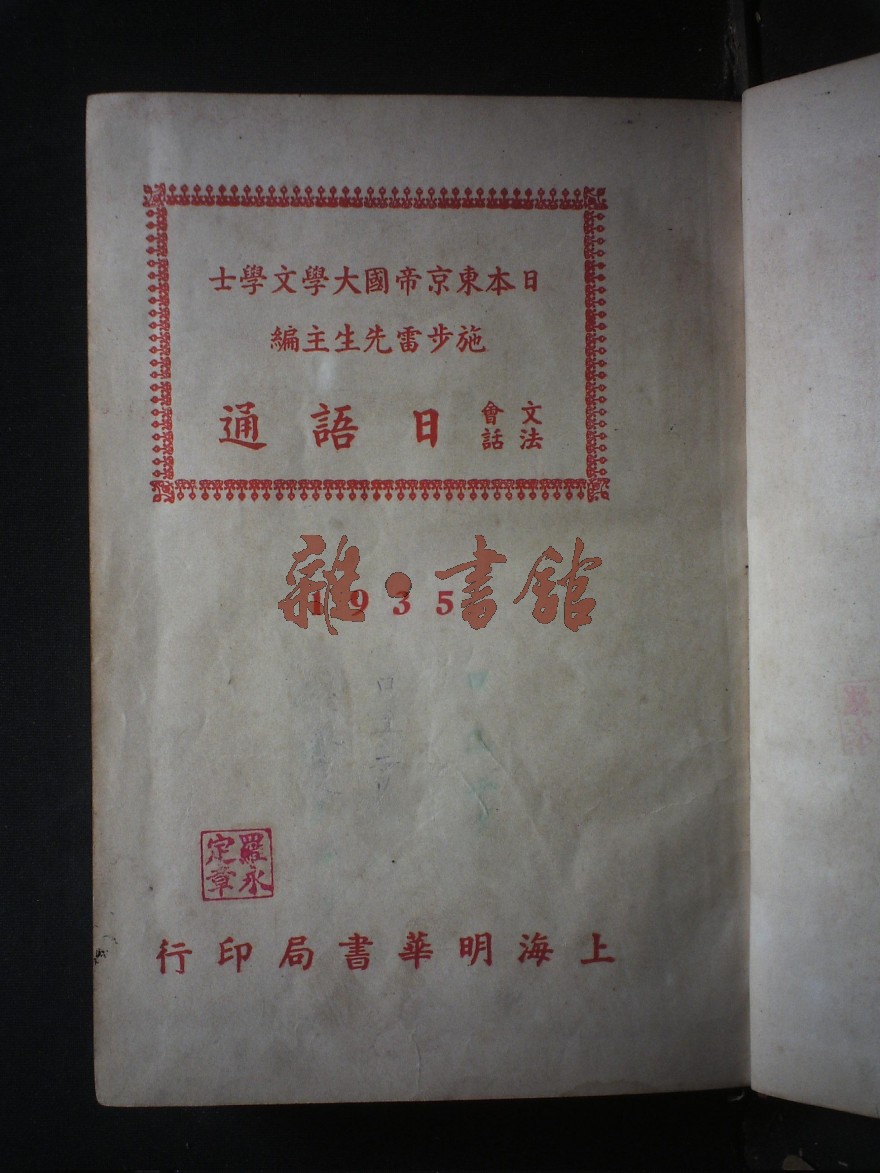 日本東京帝國大學文學士
施步雷先生主編
文法
會話
日語通
雜·書館
1935
羅永
定章
上海明華書局印行